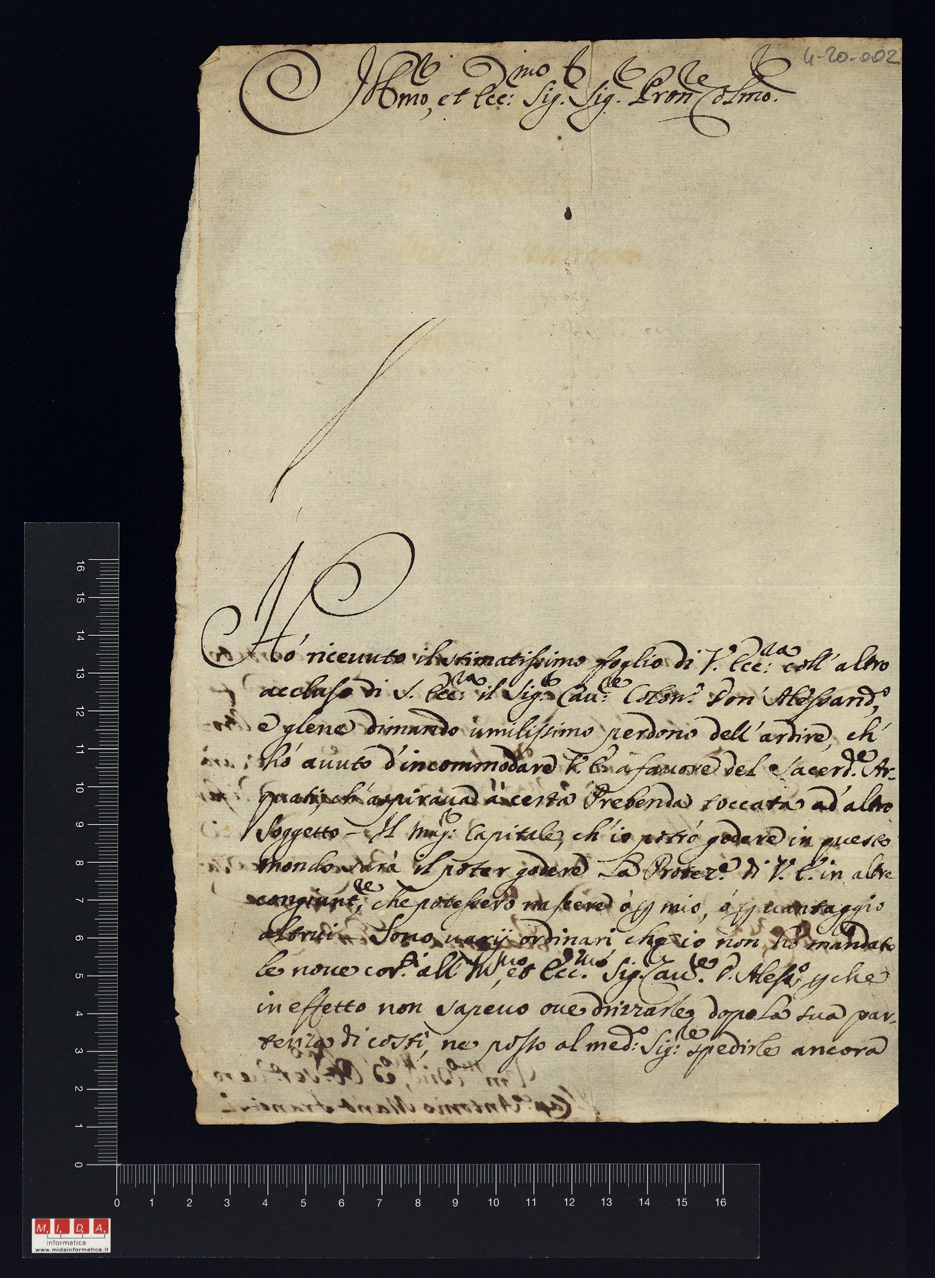 4-20-002
Ill.mo, et Ecc.mo Sig.r Sig.r Pron.e Col.mo
Hò riceuuto il stimatissimo foglio di V. Ecc.za coll'altro
accluso di S. Ecc.za il Sig.r Cau.re Colon.o Don Alessand.o,
e glene dimando umilissimo perdono dell'ardire, ch'
hò auuto d'incommodare V. E. à fauore del Sacerd.te Ar-
quati ch'aspiraua à certa Prebenda toccata ad'altro
Soggetto - Il mag.r Capitale, ch'io potrò godere in questo
mondo sarà il poter godere La Protez.e di V. E. in altre
congiunt.e, che potessero nascere ò p mio, ò p uantaggio
altrui. Sono uarij ordinari che io non hò mandato
le noue cor.ti all'Ill.mo, et Ecc.mo Sig.r Cau.re D. Aless.o, p che
in effetto non sapeuo oue drizzarle dopo la sua par-
tenza di costì, ne posso al med.o Sig.re spedirle ancora
16
15
14
13
12
11
10
9
8
7
6
5
4
3
2
1
0
0 1 2 3 4 5 6 7 8 9 10 11 12 13 14 15 16
M.I.D.A.
informatica
www.midainformatica.it